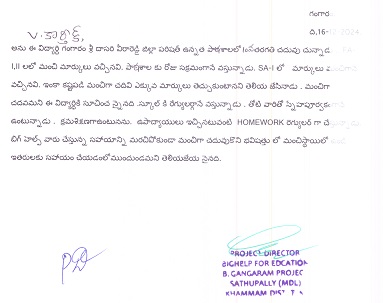 గంగార
ది,16-
V. కార్తీక్,
అను ఈ విద్యార్థి గంగారం శ్రీ దాసరి వీరారెడ్డి జిల్లా పరిషత్ ఉన్నత పాఠశాలలో చదువు చున్నాడు
I,II లలో మంచి మార్కులు వచ్చినవి. పాఠశాల కు రోజు సక్రమంగానే వస్తున్నాడు. SA-I లో మార్కులు
వచ్చినవి. ఇంకా కష్టపడి మంచిగా చదివి ఎక్కువ మార్కులు తెచ్చుకుంటానని తెలియ జేసినాడు . మంచిగా
చదవమని ఈ విద్యార్థికి సూచించ స్కూల్ కి రెగ్యులర్గానే వస్తున్నాడు . తోటి వారితో
ఉంటున్నాడు . క్రమశిక్షణగాఉంటునను. ఉపాధ్యాయులు ఇచ్చినటువంటి HOMEWORK రెగ్యులర్ గా
బిగ్ హెల్ప్ వారు చేస్తున్న సహాయాన్ని మరచిపోకుండా మంచిగా చదువుకొని భవిషత్తు లో మంచిస్థాయిలో
ఇతరులకు సహాయం చేయడంలోముందుండమని తెలియజేయ నైనది.
PROJECT DIRECTOR
BIGHELP FOR EDCATION
B. GANGARAM PROJEC
SATHUPALLY (MDL)
KHAMMAM DIST. T.